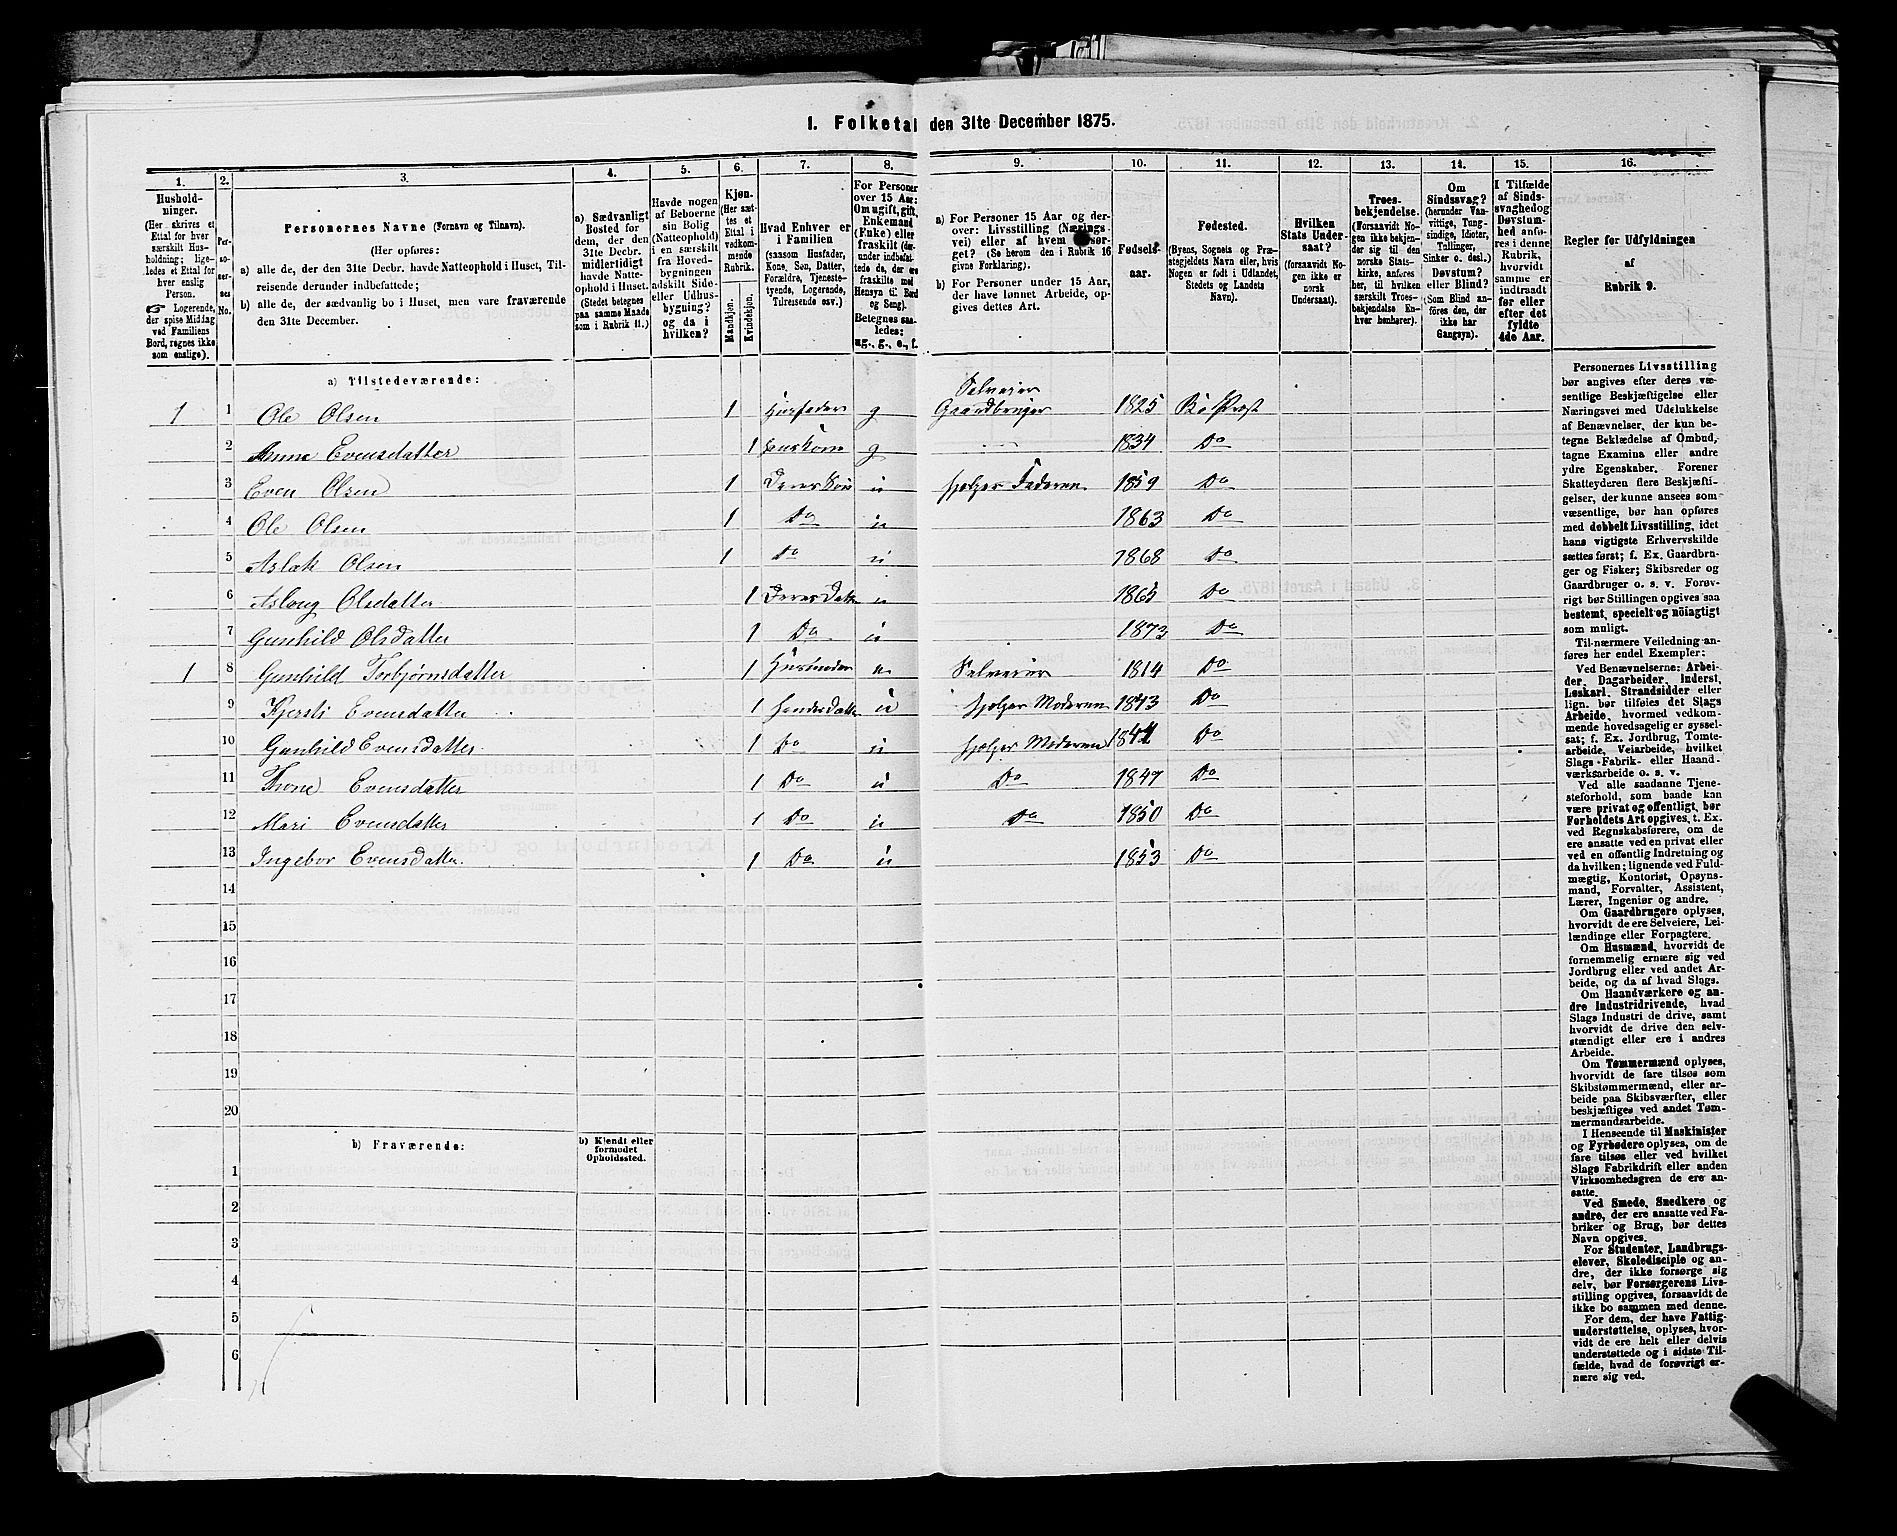 1. Folketal den 31te December 1875.
1. 2. 3. 4. 5. 6. 7. 8. 9. 10. 11. 12. 13. 14. 15. 16.
Hushold-
ninger.
(Her skrives et
Ettal for hver
særskilt Hus-
holdning; lige-
ledes et Ettal for
hver enslig
Person.
Logerende,
der spise Middag
ved Familiens
Bord, regnes ikke
som enslige).
Per-
so-
ner-
nes
No.
Personernes Navne (Fornavn og Tilnavn).
(Her opføres:
a) alle de, der den 31te Decbr. havde Natteophold i Huset, Til-
reisende derunder indbefattede;
b) alle de, der sædvanlig bo i Huset, men vare fraværende
den 31te December.
a) Sædvanligt
Bosted for
dem, der den
31te Decbr.
midlertidigt
havde Natte-
ophold i Huset.
(Stedet betegnes
paa samme Maade
som i Rubrik 11.)
Havde nogen
af Beboerne
sin Bolig
(Natteophold)
i en særskilt
fra Hoved-
bygningen
adskilt Side-
eller Udhus-
bygning?
og da i
hvilken?
Kjøn.
(Her sæt-
tes et
Ettal i
vedkom-
mende
Rubrik.
Mandkjøn.
Kvindekjøn.
Hvad Enhver er
i Familien
(saasom Husfader,
Kone, Søn, Datter,
Forældre, Tjeneste-
tyende, Logerende,
Tilreisende osv.)
For Personer
over 15 Aar:
Om ugift, gift,
Enkemand
(Enke) eller
fraskilt (der-
under indbefat-
tede de, der ere
fraskilte med
Hensyn til Bord
og Seng).
Betegnes saa-
ledes:
ug., g., e., f.
a) For Personer 15 Aar og der-
over: Livsstilling (Nærings-
vei) eller af hvem forsør-
get? (Se herom den i Rubrik 16
givne Forklaring).
b) For Personer under 15 Aar,
der have lønnet Arbeide, op-
gives dettes Art.
Fødsels-
aar.
Fødested.
(Byens, Sognets og Præ-
stegjeldets Navn eller, hvis
Nogen er født i Udlandet,
Stedets og Landets
Navn).
Hvilken
Stats Under-
saat?
(forsaavidt No-
gen ikke er
norsk
Undersaat).
Troes-
bekjendelse.
(Forsaavidt No-
gen ikke bekjen-
der sig til den
norske Stats-
kirke, anføres
her, til hvilken
særskilt Troes-
bekjendelse En-
hver henhører).
Om
Sindssvag?
(herunder Van-
vittige, Tung-
sindige, Idioter,
Tullinger,
Sinker o. desl.)
Døvstum?
eller Blind?
(Som Blind an-
føres den, der
ikke har
Gangsyn).
I Tilfælde
af Sinds-
svaghed og
Døvstum-
hed anfø-
res i denne
Rubrik,
hvorvidt
samme er
indtraadt
før eller
efter det
fyldte
4de Aar.
Regler for Udfyldningen
af
Rubrik 9.
a) Tilstedeværende:
1 1 Ole Olsen 1 Husfader g Selveier Gaardbruger 1825 Bø Præst
2 Anne Evensdatter 1 Huskone g 1834 Do
3 Even Olsen 1 Deres Søn u hjælper Faderen 1859 Do
4 Ole Olsen 1 Do u 1863 Do
5 Aslak Olsen 1 Do u 1868 Do
6 Aslaug Olsdatter 1 Deres Datter u 1865 Do
7 Gunhild Olsdatter 1 Do u 1873 Do
1 8 Gunhild Torbjørnsdatter 1 Husmoder e Selveier 1814 Do
9 Kjersti Evensdatter 1 hendes Datter u hjelper Moderen 1843 Do
10 Gunhild Evensdatter 1 Do u hjelper Moderen 1844 Do
11 Thone Evensdatter 1 Do u Do 1847 Do
12 Mari Evensdatter 1 Do u Do 1850 Do
13 Ingebor Evensdatter 1 Do u 1853 Do
14
15
16
17
18
19
20
b) Fraværende:
b) Kjendt eller
formodet
Opholdssted.
1
2
3
4
5
6
Personernes Livsstilling
bør angives efter deres væ-
sentlige Beskjæftigelse eller
Næringsvei med Udelukkelse
af Benævnelser, der kun be-
tegne Beklædelse af Ombud,
tagne Examina eller andre
ydre Egenskaber. Forener
Skatteyderen flere Beskjæfti-
gelser, der kunne ansees som
væsentlige, bør han opføres
med dobbelt Livsstilling, idet
hans vigtigste Erhvervskilde
sættes først; f. Ex. Gaardbru-
ger og Fisker; Skibsreder og
Gaardbruger o. s. v. Forøv-
rigt bør Stillingen opgives saa
bestemt, specielt og nöiagtigt
som muligt.
Til nærmere Veiledning an-
føres her endel Exempler:
Ved Benævnelserne: Arbei-
der, Dagarbeider, Inderst,
Løskarl, Strandsidder eller
lign. bør tilføies det Slags
Arbeide, hvormed vedkom-
mende hovedsagelig er syssel-
sat; f. Ex. Jordbrug, Tomte-
arbeide, Veiarbeide, hvilket
Slags Fabrik- eller Haand-
værksarbeide o. s. v.
Ved alle saadanne Tjene-
steforhold, som baade kan
være privat og offentligt, bør
Forholdets Art opgives, t. Ex.
ved Regnskabsførere, om de
ere ansatte ved en privat eller
ved en offentlig Indretning og
da hvilken; lignende ved Fuld-
mægtig, Kontorist, Opsyns-
mand, Forvalter, Assistent,
Lærer, Ingeniør og andre.
Om Gaardbrugere oplyses,
hvorvidt de ere Selveiere, Lei-
lændinge eller Forpagtere.
Om Husmænd, hvorvidt de
fornemmelig ernære sig ved
Jordbrug eller ved andet Ar-
beide, og da af hvad Slags.
Om Haandværkere og an-
dre Industridrivende, hvad
Slags Industri de drive, samt
hvorvidt de drive den selv-
stændigt eller ere i andres
Arbeide.
Om Tømmermænd oplyses,
hvorvidt de fare tilsøs som
Skibstømmermænd, eller ar-
beide paa Skibsværfter, eller
beskjæftiges ved andet Tøm-
mermandsarbeide.
I Henseende til Maskinister
og Fyrbødere oplyses, om de
fare tilsøs eller ved hvilket
Slags Fabrikdrift eller anden
Virksomhedsgren de ere an-
satte.
Ved Smede, Snedkere og
andre, der ere ansatte ved Fa-
briker og Brug, bør dettes
Navn opgives.
For Studenter, Landbrugs-
elever, Skoledisciple og an-
dre, der ikke forsørge sig
selv, bør Forsørgerens Livs-
stilling opgives, forsaavidt de
ikke bo sammen med denne.
For dem, der have Fattig-
understøttelse, oplyses, hvor-
vidt de ere helt eller delvis
understøttede og i sidste Til-
fælde, hvad de forøvrigt er-
nære sig ved.